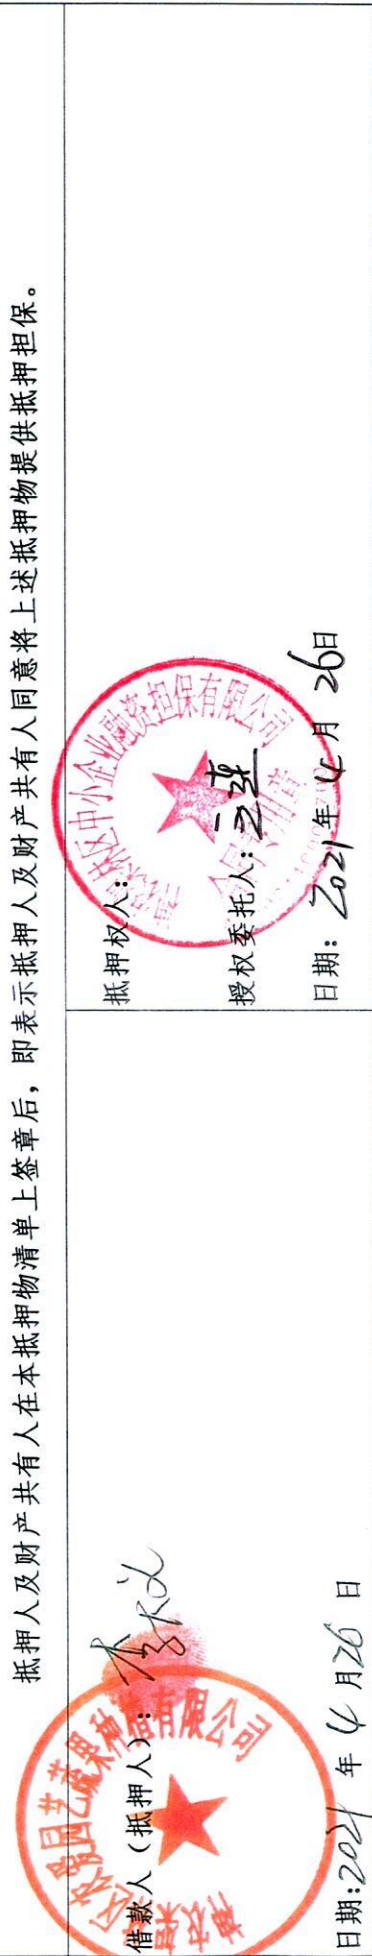 抵押人及财产共有人在本抵押物清单上签章后，即表示抵押人及财产共有人同意将上述抵押物提供抵押担保。
借款人（抵押人）：
日期：2021年4月26日
园艺蔬果种植有限公司
抵押权人：
授权委托人：
日期：2021年4月26日
区中小企业融资担保有限公司
合同专用章